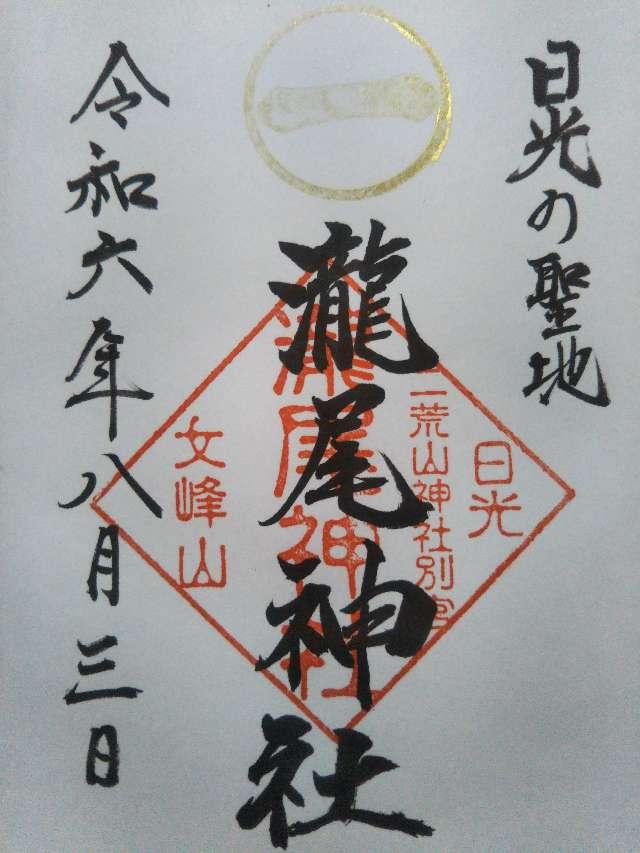 日光の聖地
一
瀧尾神社
日光
二荒山神社別宮
瀧尾神社
女峰山
令和六年八月三日